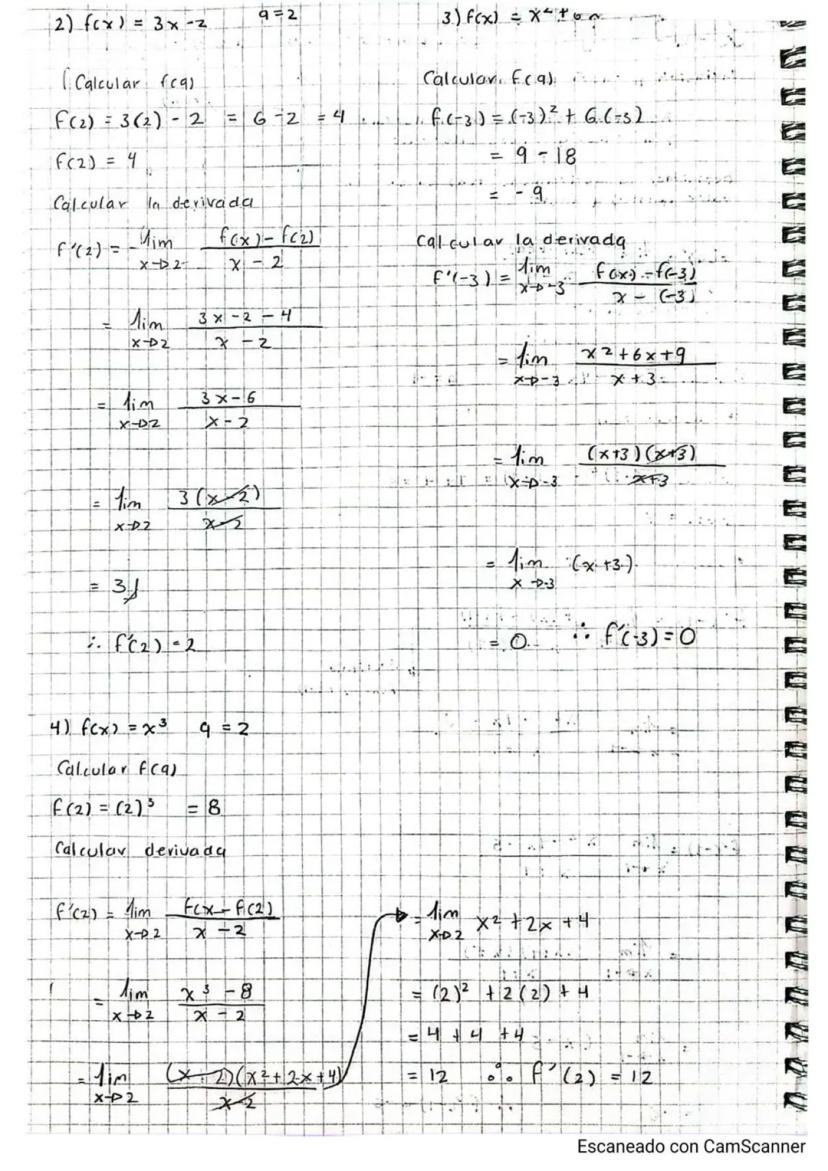 2) f(x) = 3x - 2    a = 2
Calcular f(a)
f(2) = 3(2) - 2 = 6 - 2 = 4
f(2) = 4
Calcular la derivada
f'(2) = lim x→2 (f(x) - f(2))/(x - 2)
= lim x→2 (3x - 2 - 4)/(x - 2)
= lim x→2 (3x - 6)/(x - 2)
= lim x→2 3(x - 2)/(x - 2)
= 3
∴ f'(2) = 2
3) f(x) = x² + 6
Calcular f(a)
f(-3) = (-3)² + 6(-3)
= 9 - 18
= -9
Calcular la derivada
f'(-3) = lim x→-3 (f(x) - f(-3))/(x - (-3))
= lim x→-3 (x² + 6x + 9)/(x + 3)
= lim x→-3 (x+3)(x+3)/(x+3)
= lim x→-3 (x + 3)
= 0 ∴ f'(-3) = 0
4) f(x) = x³    a = 2
Calcular f(a)
f(2) = (2)³ = 8
Calcular derivada
f'(2) = lim x→2 (f(x - f(2))/(x - 2)
= lim x→2 (x³ - 8)/(x - 2)
= lim x→2 (x - 2)(x² + 2x + 4)/(x - 2)
= lim x→2 x² + 2x + 4
= (2)² + 2(2) + 4
= 4 + 4 + 4
= 12 ∴ f'(2) = 12
Escaneado con CamScanner